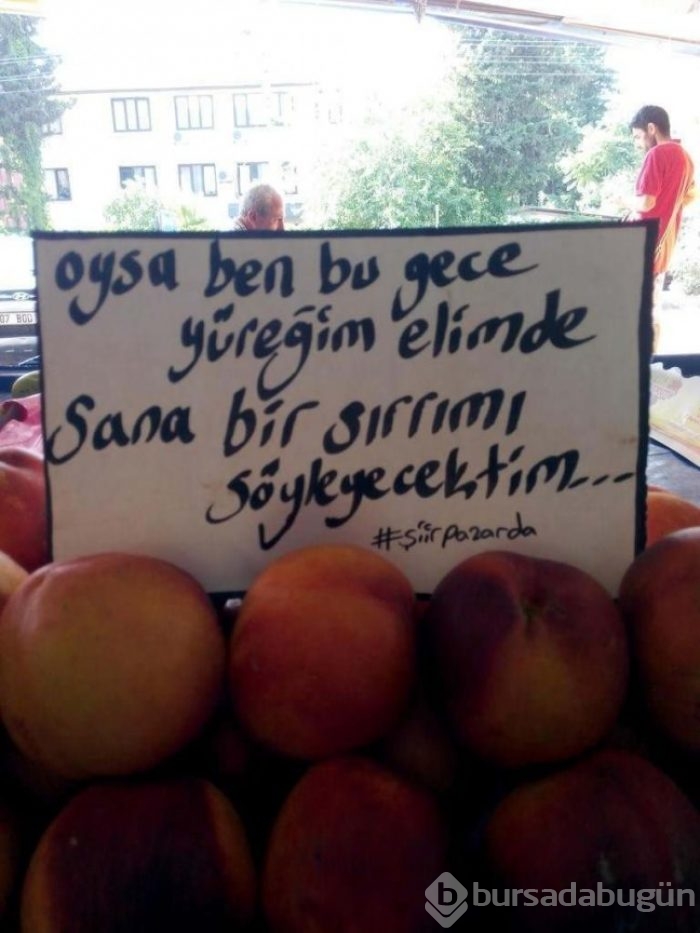 oysa ben bu gece
yüreğim elimde
sana bir sırrımı
söyleyecektim...
#şiirpazarda
07 BOD
bursadabugün